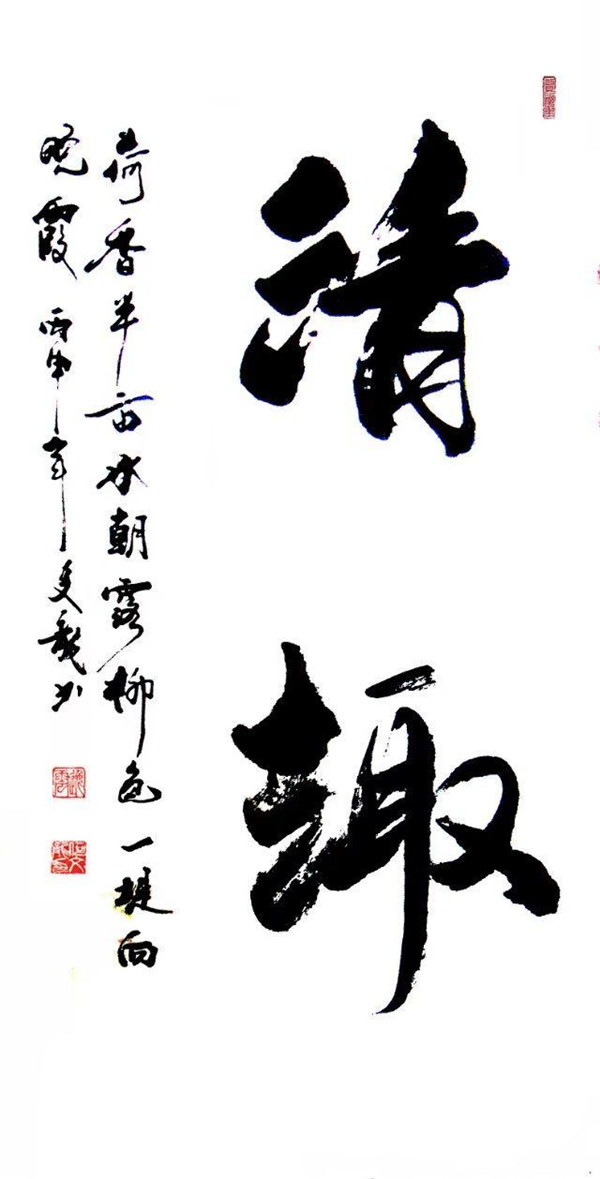 清趣
荷香半亩水朝露柳色一堤向
晚霞 丙申年 文龙书